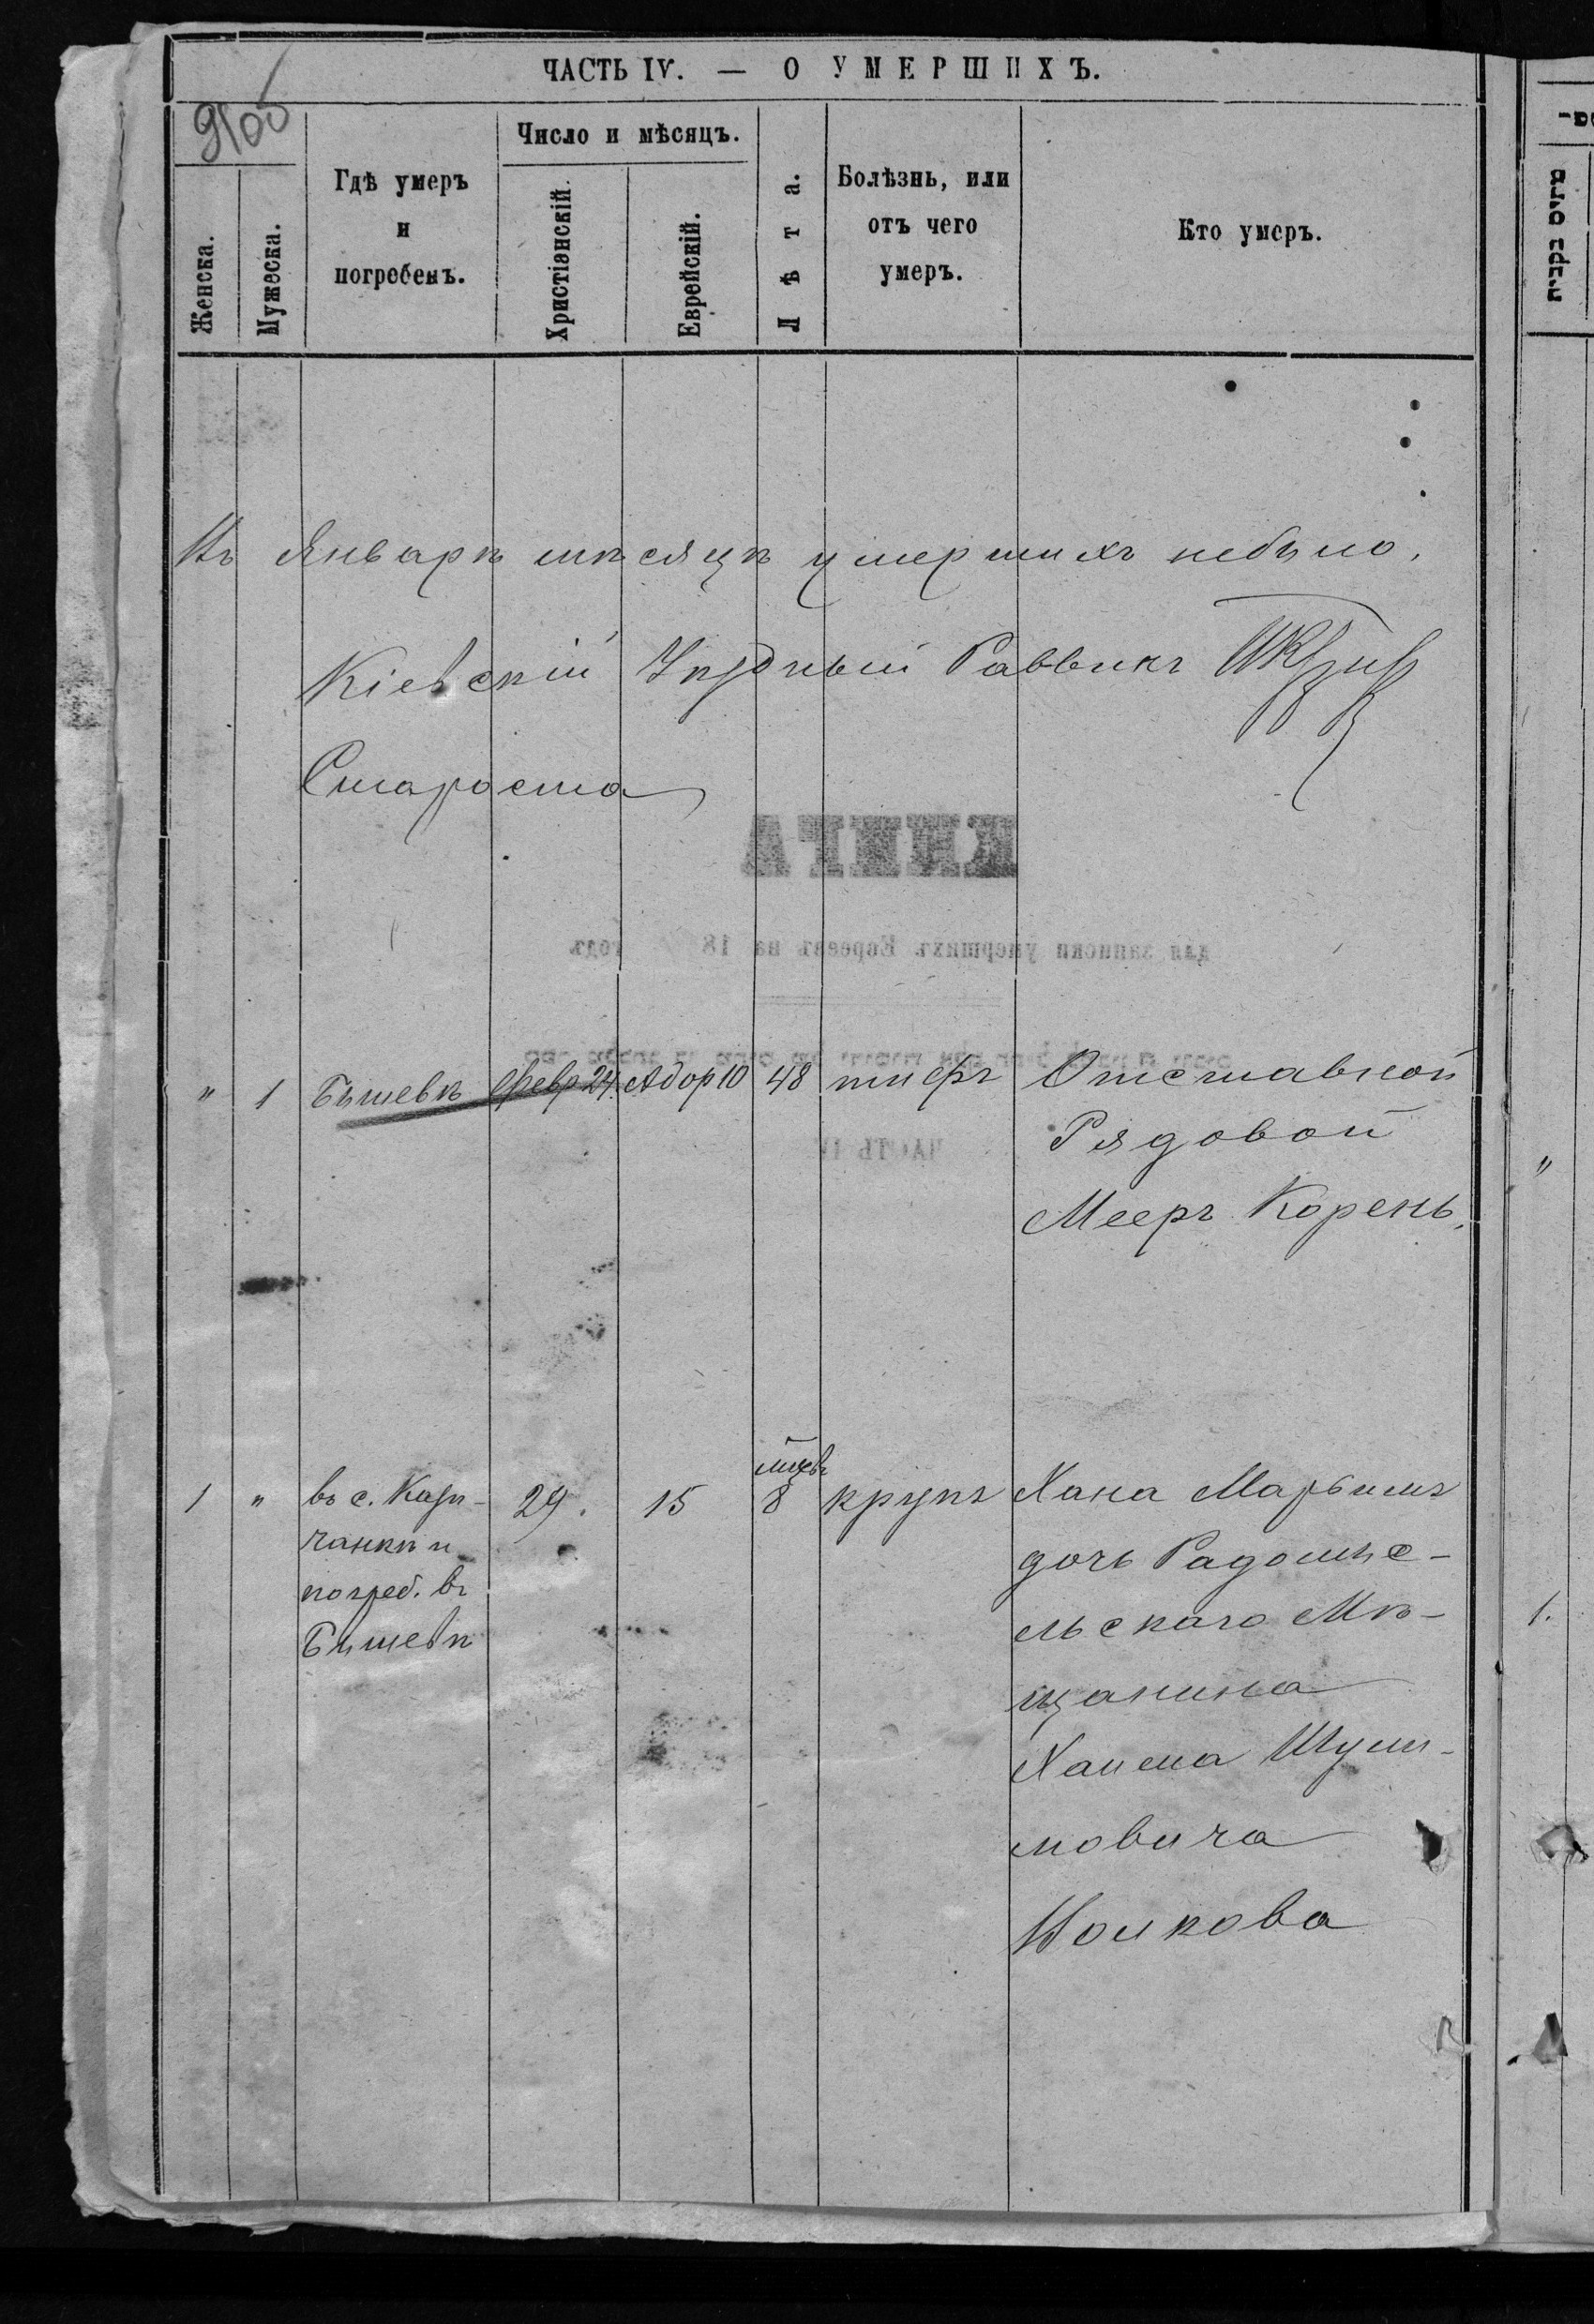 ЧАСТЬ IV. — О УМЕРШИХЪ.
Женска.
Мужеска.
Гдѣ умеръ
и
погребенъ.
Число и мѣсяцъ.
Христіянскій.
Еврейскій.
Лѣта.
Болѣзнь, или
отъ чего
умеръ.
Кто умеръ.
Въ Январѣ мѣсяцѣ умершихъ небыло.
Кіевскій Уѣздный Раввинъ
Староста
КНИГА
для записки умершихъ Евреевъ на 18 годъ
" 1 Бышевѣ Февр 24. Адор 10 48 тифъ Отставной
Рядовой
Мееръ Корень.
ЧАСТЬ IV
1 " въ с. 29. 15 8 крупъ Хана Марьимъ
чанкѣ и
погреб. въ
Бышевѣ
дочь Радомыс-
льскаго Мѣ-
щанина
Хаима Шули-
мовича
Волкова
"
1.